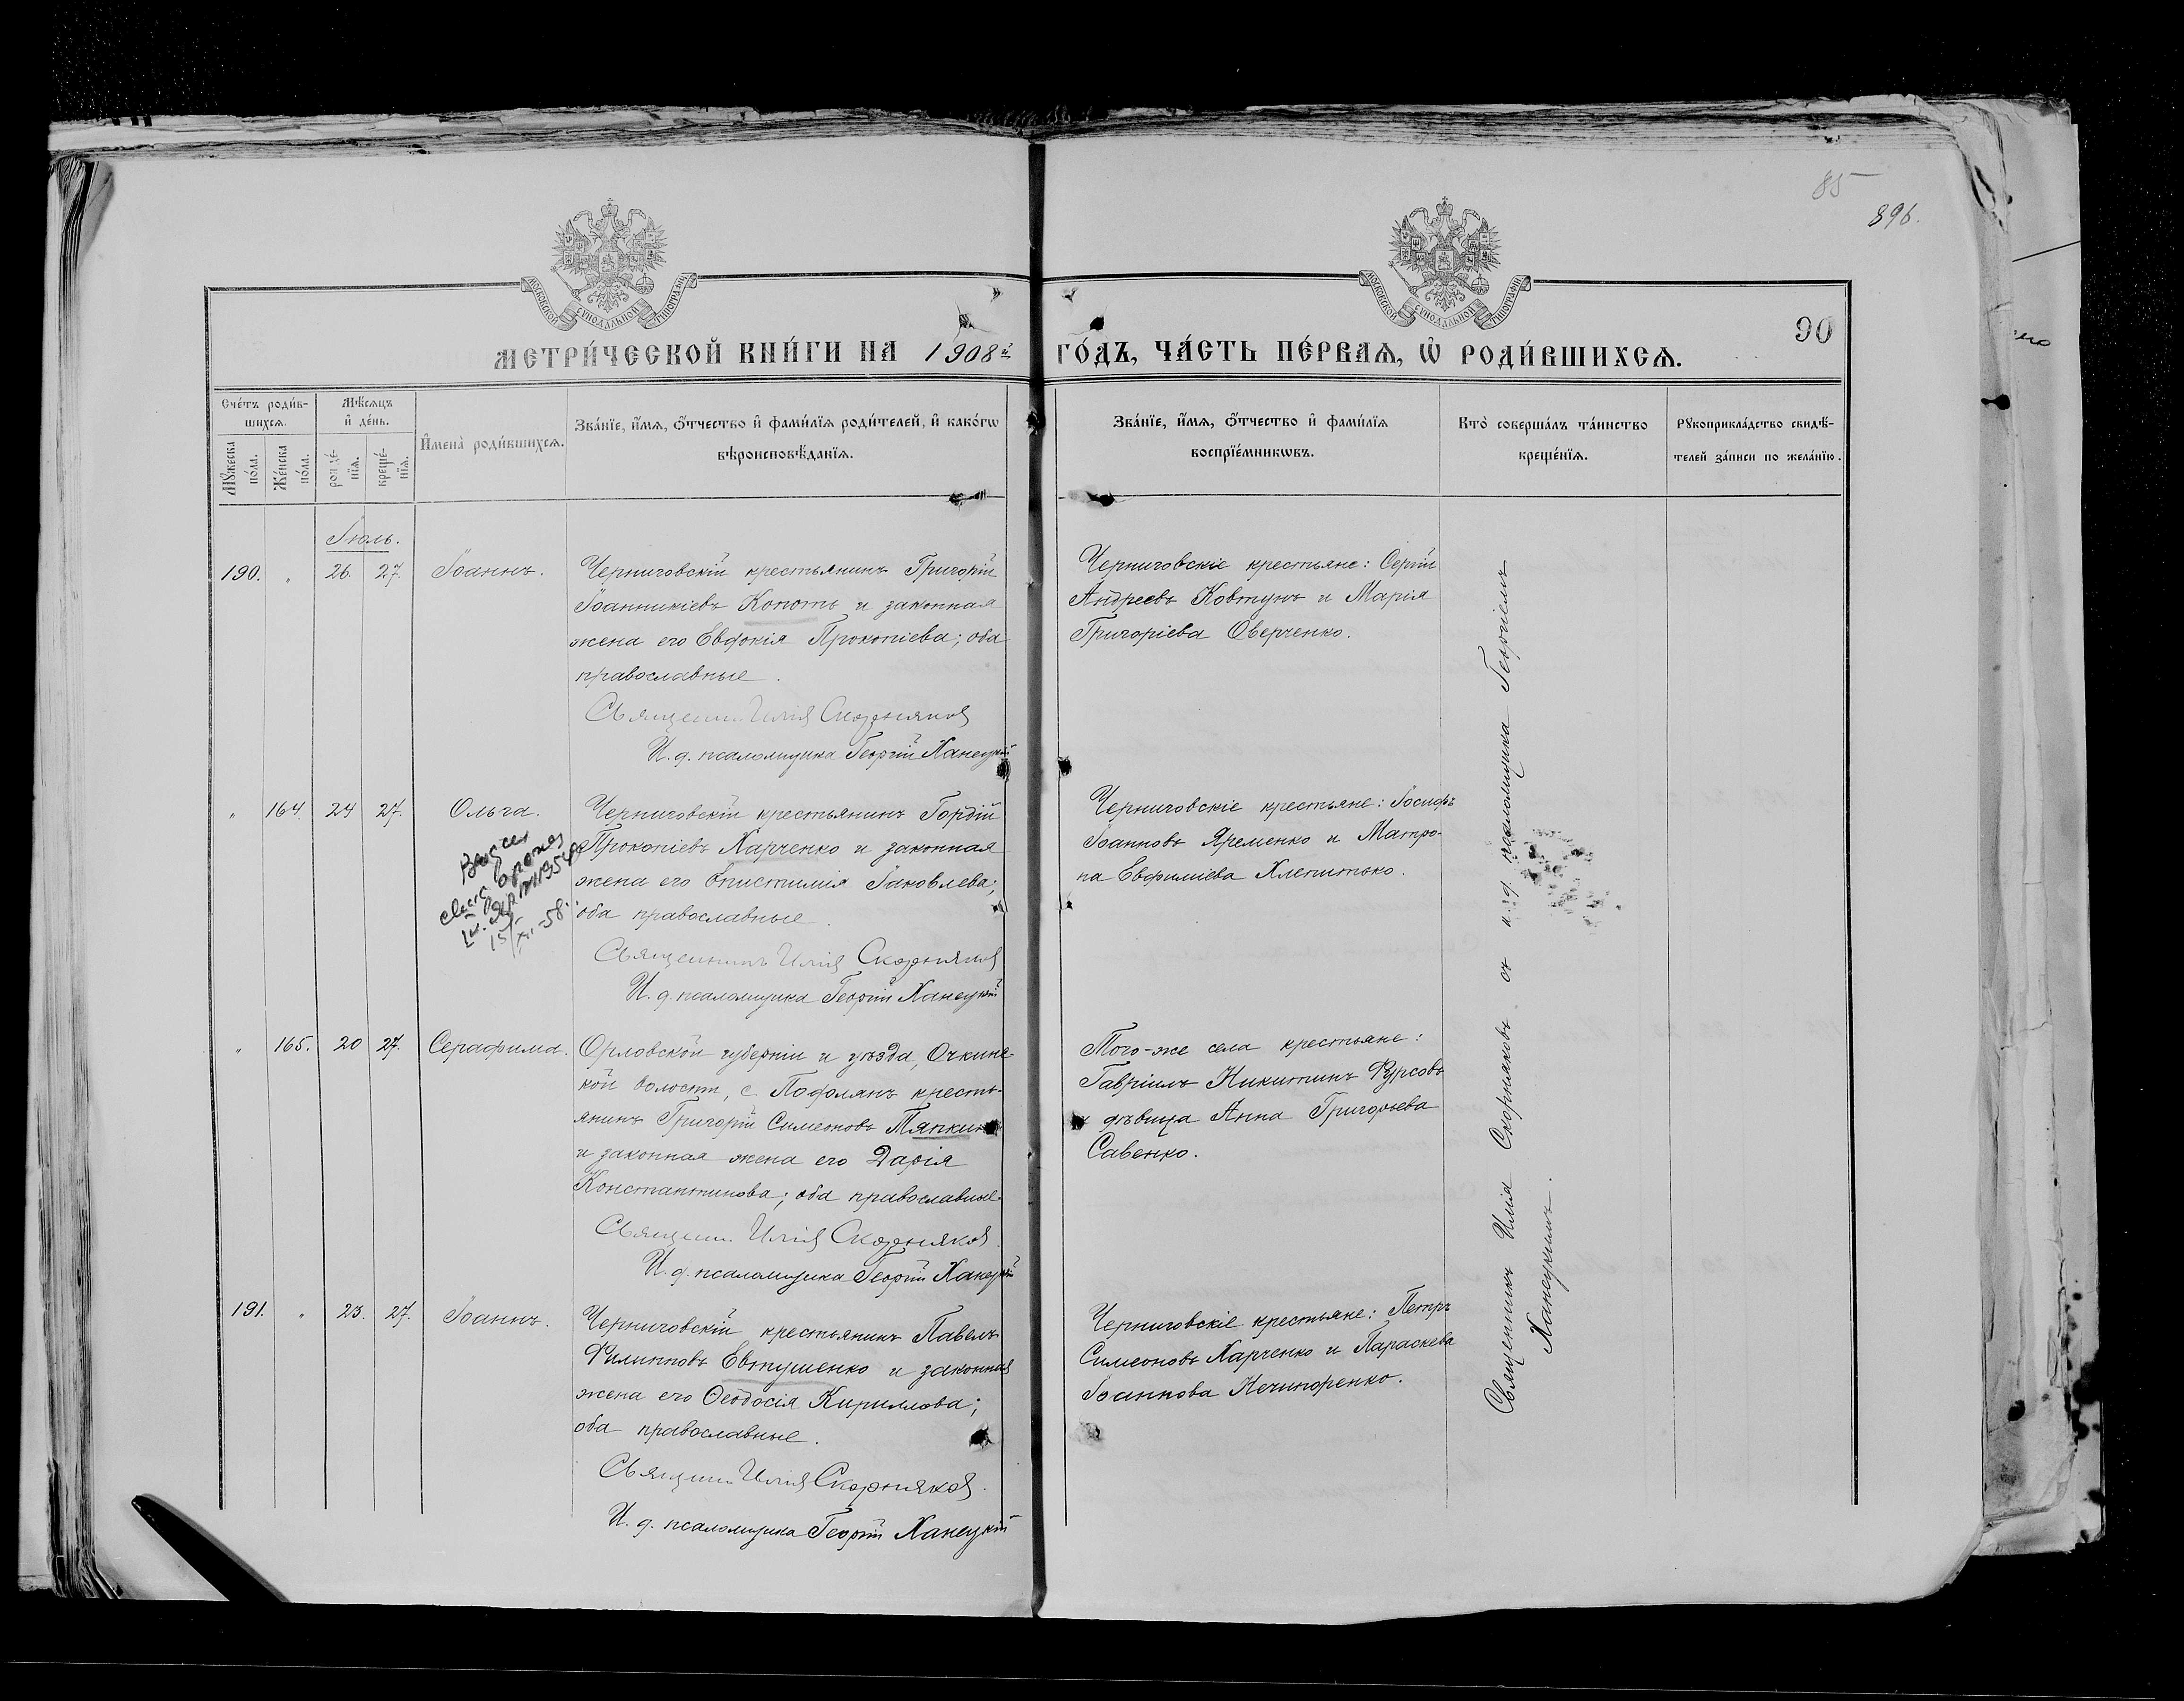 85
896.
МОСКОВСКОЙ СѴНОДАЛЬНОЙ ТИПОГРАФІИ
МОСКОВСКОЙ СѴНОДАЛЬНОЙ ТИПОГРАФІИ
МЕТРИ́ЧЕСКОЙ КНИ́ГИ НА 1908й ГО́ДЪ, ЧА́СТЬ ПЕ́РВАѦ, Ѡ҆ РОДИ́ВШИХСѦ.
90
Сче́тъ роди́в-
шихсѧ.
Мꙋ́жеска
по́ла.
Же́нска
по́ла.
Мѣ́сѧцъ
и҆ де́нь.
рожде́-
нїѧ.
креще́-
нїѧ.
И҆мена̀ роди́вшихсѧ.
Зва́нїе, и҆́мѧ, ѻ҆́тчество и҆ фами́лїѧ роди́телей, и҆ како́гѡ
вѣроисповѣ́данїѧ.
Зва́нїе, и҆́мѧ, ѻ҆́тчество и҆ фами́лїѧ
воспрїе́мникѡвъ.
Кто̀ соверша́лъ та́инство
креще́нїѧ.
Рꙋкоприкла́дство свидѣ́-
телей за́писи по жела́нїю.
Іюль.
190. " 26. 27. Іоаннъ.
Черниговскій крестьянинъ Григорій
Іоанникіевъ Копоть и законная
жена его Евдокія Прокопіева; оба
православные.
Священн. Илія Скорняков
И. д. псаломщика Георгій Ханецкій
Черниговскіе крестьяне: Сергій
Андреевъ Ковтунъ и Марія
Григоріева Оверченко.
" 164. 24 27. Ольга.
15/XI-58.
Черниговскій крестьянинъ Гордій
Прокопіевъ Харченко и законная
жена его Епистимія Іаковлева;
оба православные.
Священникъ Илія Скорняков
И. д. псаломщика Георгій Ханецкій
Черниговскіе крестьяне: Іосифъ
Іоанновъ Яременко и Матро-
на Евфиміева Хлепитько.
" 165. 20 27. Серафима.
Орловской губерніи и уѣзда, Очкинс-
кой волости, с. Подолянъ кресть-
янинъ Григорій Симеоновъ Тяпкинъ
и законная жена его Дарія
Константинова; оба православные.
Священн. Илія Скорняков
И. д. псаломщика Георгій Ханецкій
Того-же села крестьяне:
Гавріилъ Никитинъ Фурсовъ
и дѣвица Анна Григорьева
Савенко.
191. " 23. 27. Іоаннъ.
Черниговскій крестьянинъ Павелъ
Филипповъ Евтушенко и законная
жена его Ѳеодосія Кириллова;
оба православные.
Священн. Илія Скорняков.
И. д. псаломщика Георгій Ханецкій
Черниговскіе крестьяне: Петръ
Симеоновъ Харченко и Параскева
Іоаннова Нечипоренко.
Священникъ Илія Скорняковъ съ и. д. псаломщика Георгіемъ
Ханецкимъ.